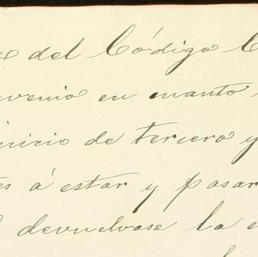 del Código C
venio en cuanto
inicio de tercero y
es á estar y pasar
devuelvase la e